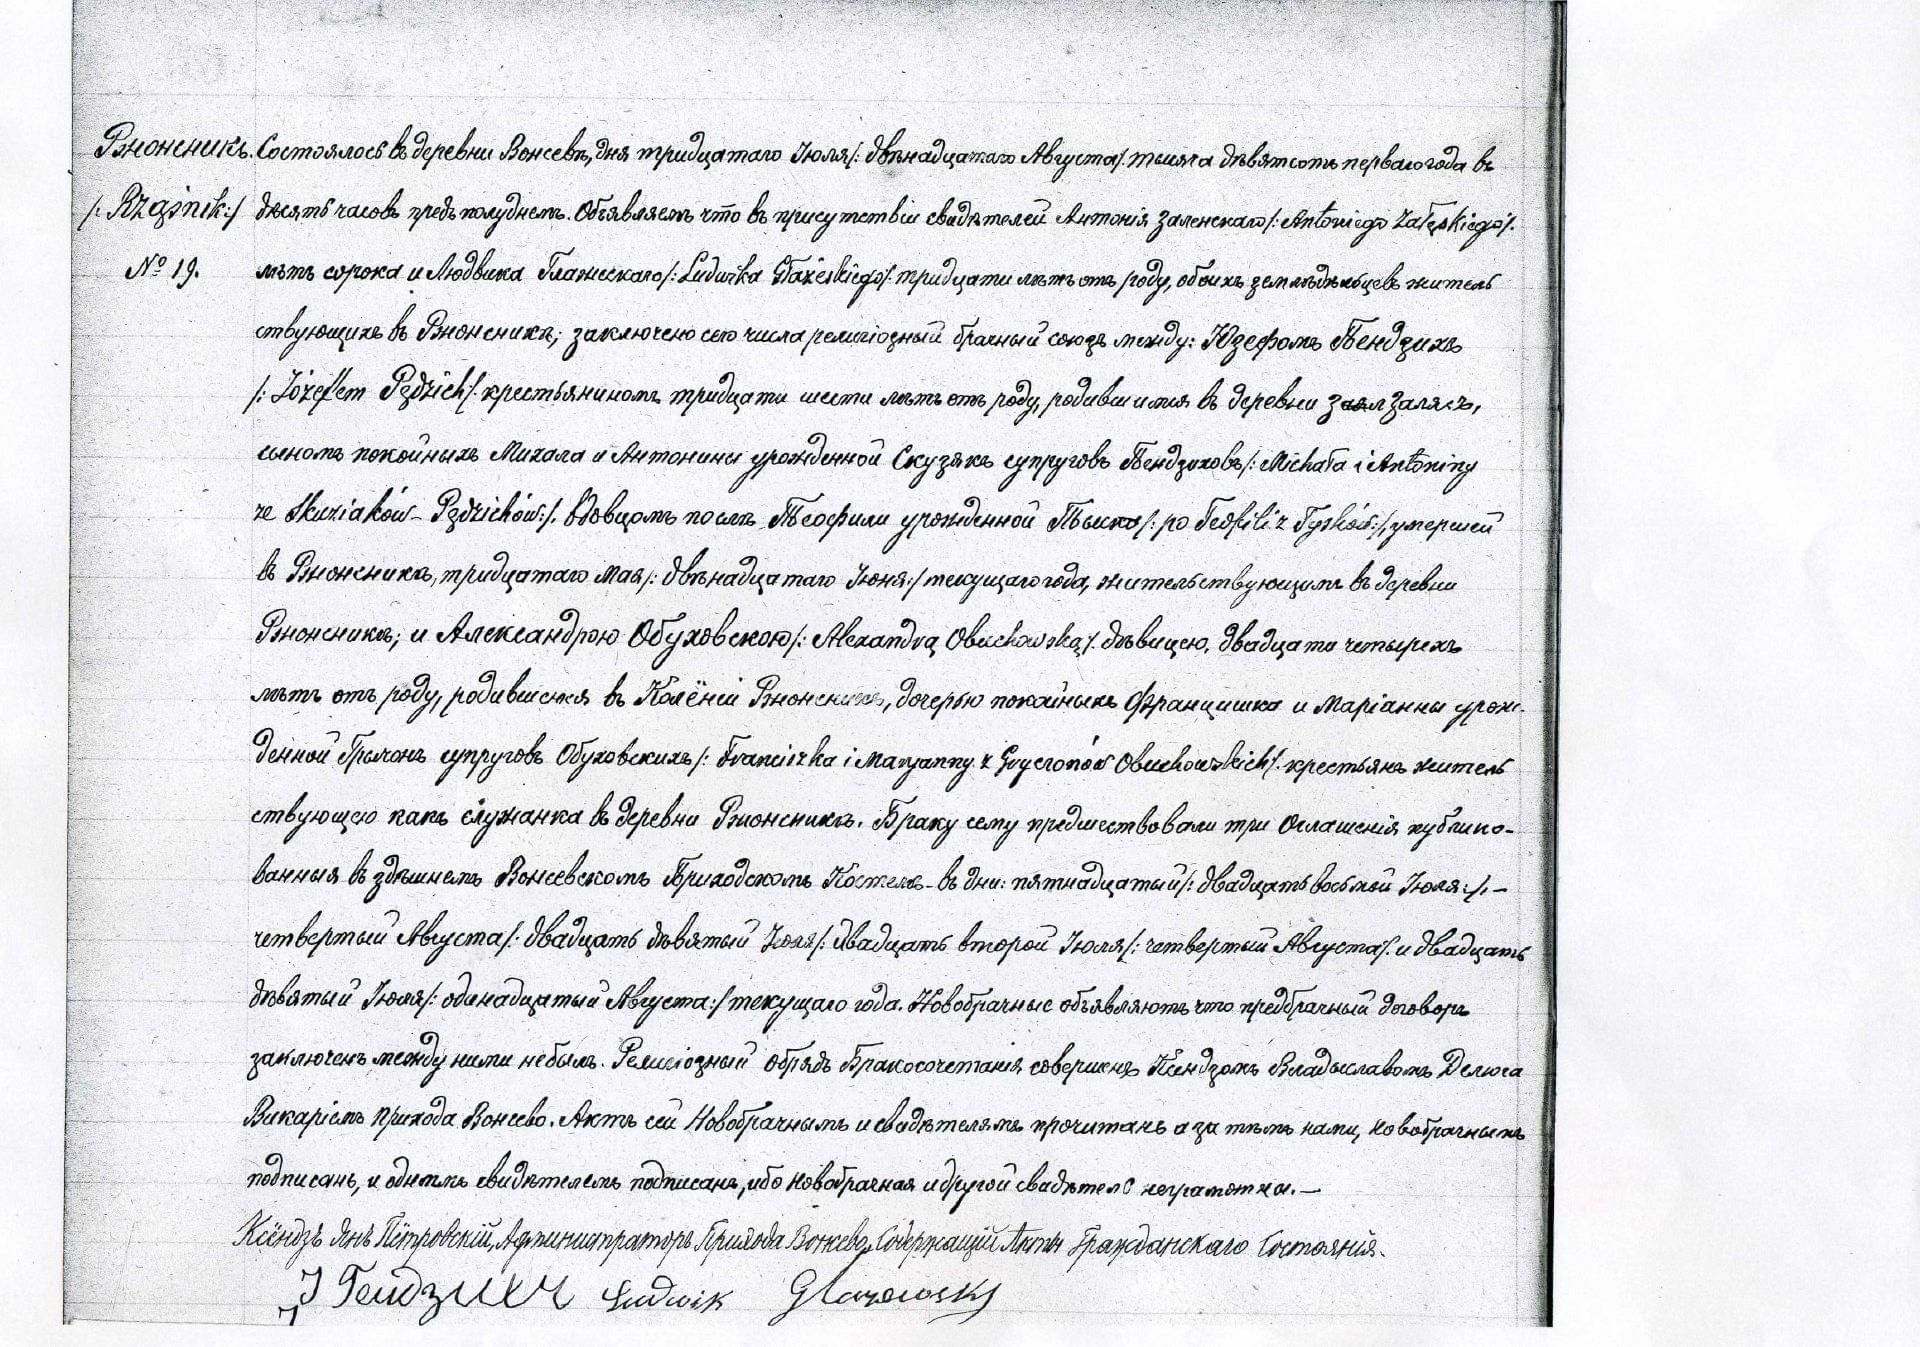 Ржонсникъ. Состоялось въ деревни Вонсевѣ, дня тридцатаго Іюля /: двѣнадцатаго Августа/. тысяча дѣвятсотъ перваго года въ
/: Rząśnik :/ дѣсять часовъ предъ полуднемъ. Объявляемъ что въ присутствіи свидѣтелей Антонія Заленскаго /: Antoniego Załęskiego/.
№ 19. лѣтъ сорока и Людвика Глажескаго /: Ludwika Głażeskiego/. тридцати лѣтъ отъ роду, обоихъ земледѣльцевъ житель
ствующихъ въ Ржонсникѣ; заключено сего числа религіозный брачный союзъ между: Юзефомъ Пендзихъ
/: Józefem Pędzich/. крестьяниномъ тридцати шести лѣтъ отъ роду, родившимся въ деревни Залясъ,
сыномъ покойныхъ Михала и Антонины урожденной Скузякъ супруговъ Пендзиховъ /: Michała i Antoniny
ze Skuziaków - Pędzichów :/. вдовцомъ послѣ Теофили урожденной Тыско /: po Teofili z Tysków :/, умершей
въ Ржонсникѣ, тридцатаго Мая /: двѣнадцатаго Іюня :/ текущаго года, жительствующимъ въ деревни
Ржонсникѣ; и Александрою Обуховскою /: Alexandrą Obuchowską/. дѣвицею, двадцати четырехъ
лѣтъ отъ роду, родившеюся въ Колёніи Ржонсникъ, дочерью покойныхъ Францишка и Маріанны урож-
денной Грыцонъ супруговъ Обуховскихъ /: Franciszka i Maryanny z Gryconów Obuchowskich/. крестьянъ житель
ствующею какъ служанка въ деревни Ржонсникѣ. Браку сему предшествовали три Оглашенія публико-
ванныя въ здѣшнемъ Вонсевскомъ Приходскомъ Костелѣ - въ дни: пятнадцатый /: двадцать восьмой Іюля :/. —
четвертый Августа /: двадцать дѣвятый Іюля /: двадцать второй Іюля /: четвертый Августа/. и двадцать
дѣвятый Іюля /: одинадцатый Августа :/ текущаго года. Новобрачные объявляютъ что предбрачный договоръ
заключенъ между ними небылъ. Религіозный обрядъ Бракосочетанія совершенъ Ксендзомъ Владыславомъ Делюга
Викаріемъ прихода Вонсево. Актъ сей Новобрачнымъ и свидѣтелямъ прочитанъ а за тѣмъ нами, новобрачнымъ
подписанъ, и однымъ свидѣтелемъ подписанъ, ибо новобрачная и другой свидѣтель неграмотны. —
Ксёндзъ Янъ Пётровскій, Администраторъ Прихода Вонсево, Содержащій Акты Гражданскаго Состоянія.
Пендзихъ Ludwik Glazewsky